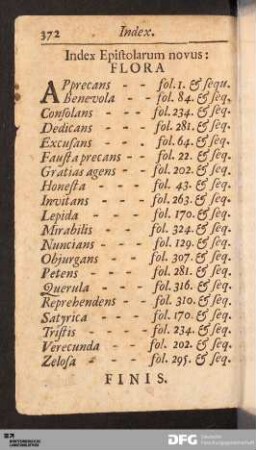 372 Index.
Index Epistolarum novus:
FLORA
APprecans - - fol. 1. & sequ.
Benevola - - fol. 84. & seq.
Consolans - - fol. 234. & seq.
Dedicans - - fol. 281. & seq.
Excusans - - fol. 64. & seq.
Fausta precans - - fol. 22. & seq.
Gratias agens - - fol. 202. & seq.
Honesta - - fol. 43. & seq.
Invitans - - - fol. 263. & seq.
Lepida - - - fol. 170. & seq.
Mirabilis - - - fol. 324. & seq.
Nuncians - - - fol. 129. & seq.
Objurgans - - fol. 307. & seq.
Petens - - - fol. 281. & seq.
Querula - - - fol. 316. & seq.
Reprehendens - fol. 310. & seq.
Satyrica - - - fol. 170. & seq.
Tristis - - - fol. 234. & seq.
Verecunda - - fol. 202. & seq.
Zelosa - - - fol. 295. & seq.
FINIS.
DFG Deutsche
Forschungsgemeinschaft